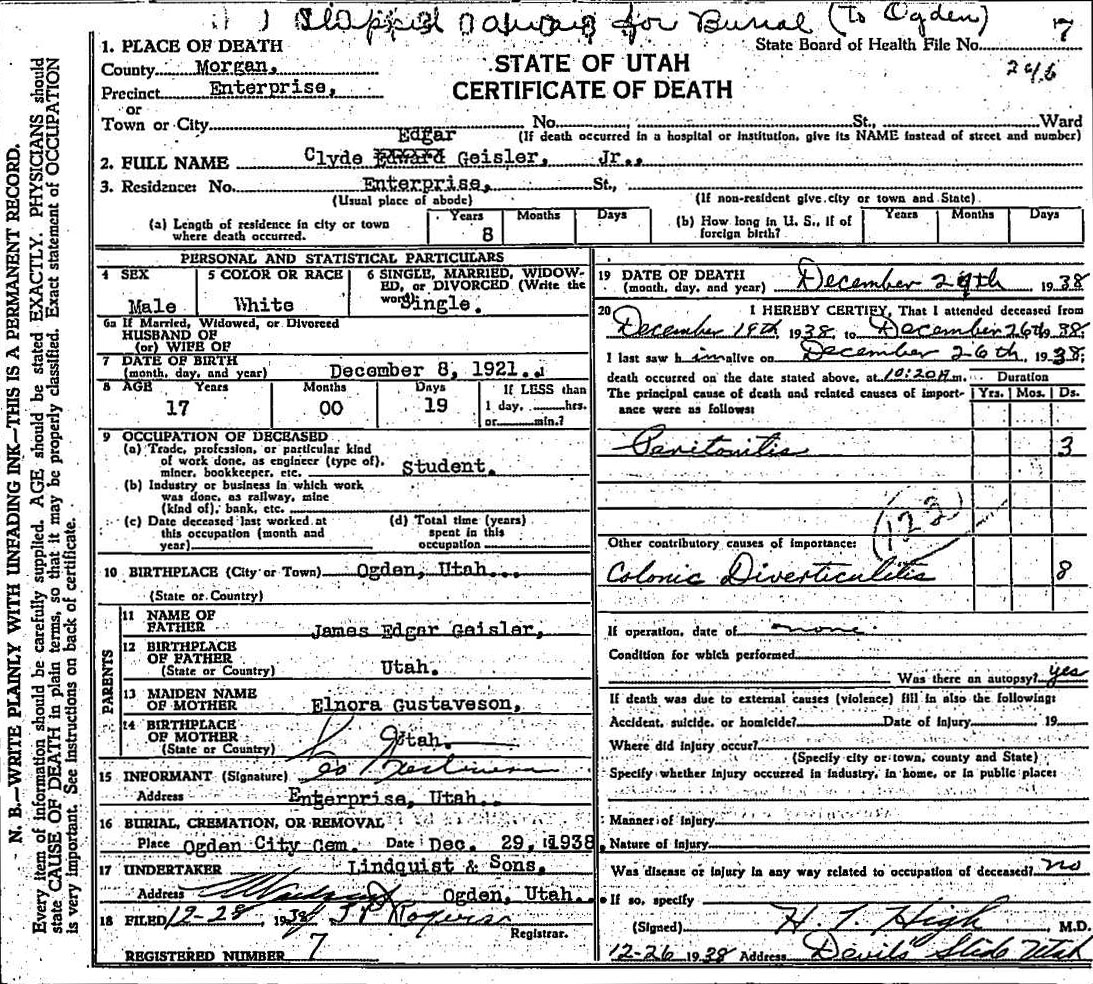 Shipped Railway for Burial (To Ogden)
7
State Board of Health File No.
246
STATE OF UTAH
CERTIFICATE OF DEATH
1. PLACE OF DEATH
County Morgan,
Precinct Enterprise,
or
Town or City No. St., Ward
(If death occurred in a hospital or institution, give its NAME instead of street and number)
Edgar
2. FULL NAME Clyde Edward Geisler, Jr.,
3. Residence: No. Enterprise, St.,
(Usual place of abode) (If non-resident give city or town and State)
(a) Length of residence in city or town where death occurred. Years 8 Months Days
(b) How long in U. S., if of foreign birth? Years Months Days
PERSONAL AND STATISTICAL PARTICULARS
4 SEX Male
5 COLOR OR RACE White
6 SINGLE, MARRIED, WIDOWED, or DIVORCED (Write the word) Single.
6a If Married, Widowed, or Divorced
HUSBAND OF
(or) WIFE OF
7 DATE OF BIRTH
(month, day, and year) December 8, 1921.
8 AGE Years Months Days If LESS than
17 00 19 1 day, hrs.
or min.?
9 OCCUPATION OF DECEASED
(a) Trade, profession, or particular kind
of work done, as engineer (type of),
miner, bookkeeper, etc. Student.
(b) Industry or business in which work
was done, as railway, mine
(kind of), bank, etc.
(c) Date deceased last worked at
this occupation (month and
year)
(d) Total time (years)
spent in this
occupation
10 BIRTHPLACE (City or Town) Ogden, Utah.
(State or Country)
PARENTS
11 NAME OF
FATHER James Edgar Geisler,
12 BIRTHPLACE
OF FATHER
(State or Country) Utah.
13 MAIDEN NAME
OF MOTHER Elnora Gustaveson,
14 BIRTHPLACE
OF MOTHER
(State or Country) Utah.
15 INFORMANT (Signature)
Address Enterprise, Utah.
16 BURIAL, CREMATION, OR REMOVAL
Place Ogden City Cem. Date Dec. 29, 1938.
17 UNDERTAKER Lindquist & Sons,
Address Ogden, Utah.
18 FILED 12-28 1938 J P Rogers
Registrar.
REGISTERED NUMBER 7
19 DATE OF DEATH
(month, day, and year) December 29th 1938
20 I HEREBY CERTIFY, That I attended deceased from
December 19th, 1938 to December 26th 1938;
I last saw him alive on December 26th, 1938;
death occurred on the date stated above, at 10:20 m. Duration
The principal cause of death and related causes of importance were as follows: Yrs. Mos. Ds.
Peritonitis 3
(122)
Other contributory causes of importance:
Colonic Diverticulitis 8
If operation, date of none.
Condition for which performed
Was there an autopsy? yes
If death was due to external causes (violence) fill in also the following:
Accident, suicide, or homicide? Date of Injury 19
Where did injury occur?
(Specify city or town, county and State)
Specify whether injury occurred in industry, in home, or in public place:
Manner of injury
Nature of Injury
Was disease or injury in any way related to occupation of deceased? no
If so, specify
(Signed) H. T. High, M.D.
12-26 1938 Address Devil's Slide Utah
N. B.—WRITE PLAINLY WITH UNFADING INK—THIS IS A PERMANENT RECORD.
Every item of information should be carefully supplied. AGE should be stated EXACTLY. PHYSICIANS should
state CAUSE OF DEATH in plain terms, so that it may be properly classified. Exact statement of OCCUPATION
is very important. See instructions on back of certificate.